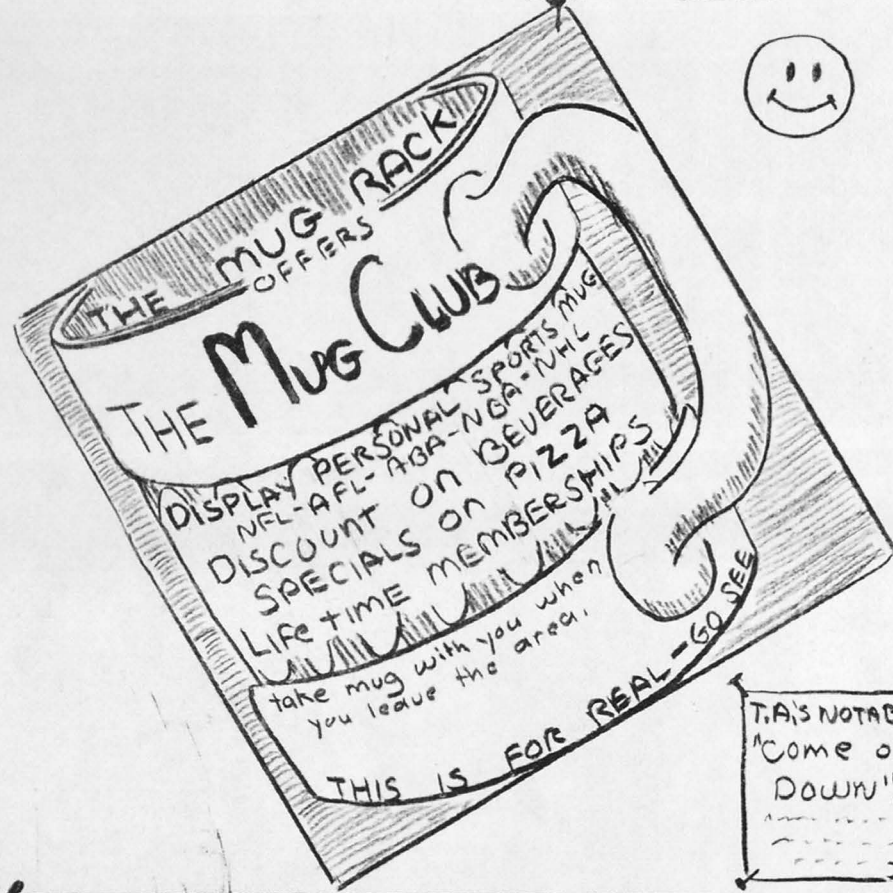 THE MUG RACK
OFFERS
THE MUG CLUB
DISPLAY PERSONAL SPORTS MUG
NFL-AFL-ABA-NBA-NHL
DISCOUNT ON BEVERAGES
SPECIALS ON PIZZA
LIFETIME MEMBERSHIPS
take mug with you when
you leave the area.
THIS IS FOR REAL-GO SEE
T.A.'S NOTAB
"COME O
DOWN"